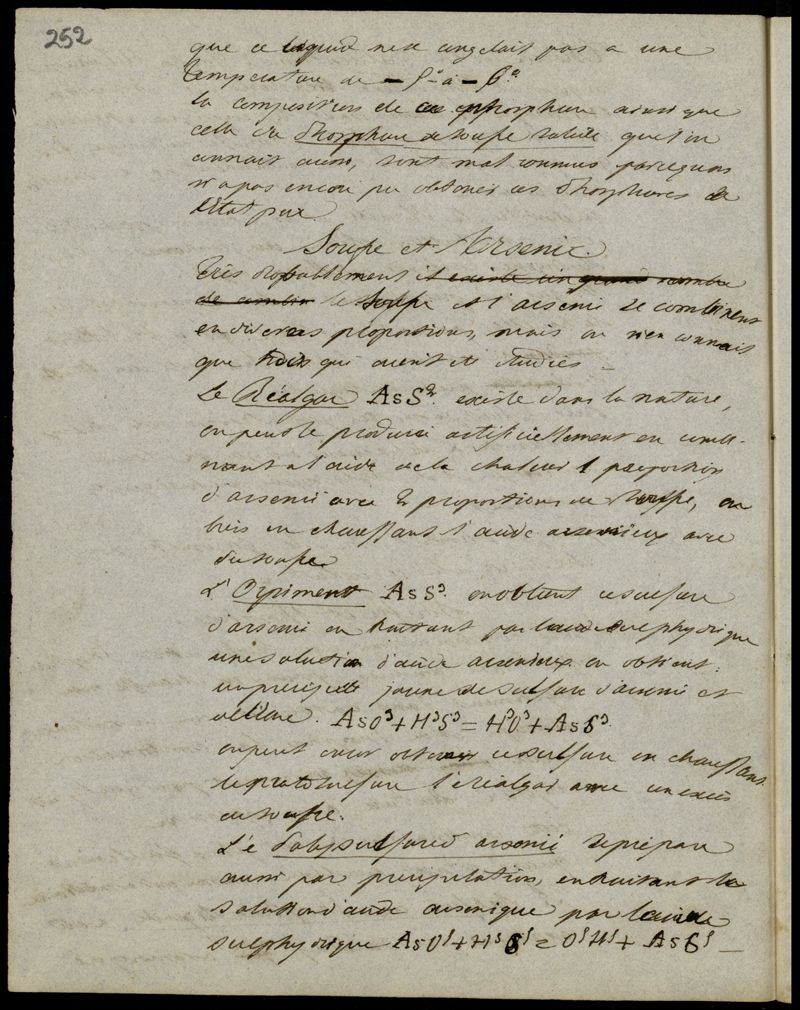 252
que ce liquide ne se congelait pas a une
température de – 5° à – 6°
la composition de ce phosphure ainsi que
celle du Phosphure de soufre solide que l'on
connait aussi, sont mal connues parcequon
n'a pas encore pu obtenir ces Phosphures de
l'état pur
Soufre et Arsenic.
Très probablement il existe un grand nombre
de combin le Soufre et l'arsenic se combinent
en diverses proportions, mais on n'en connait
que trois qui aient été étudiés –
Le Réalgar AsS². existe dans la nature,
on peut le produire artificiellement en combi-
nant a l'aide de la chaleur 1 proportion
d'arsenic avec 2 proportions de soufre, ou
bien en chauffant l'acide arsenieux avec
du soufre
L'Orpiment AsS³. on obtient ce sulfure
d'arsenic en traitant par l'acide sulphydrique
une solution d'acide arsenieux on obtient
un precipité jaune de sulfure d'arsenic et
de l'eau. AsO³+H³S³=H³O³+AsS³.
on peut encore obtenir ce sulfure en chauffant
le protosulfure le réalgar avec un excès
de soufre.
Le Polysulfure d'arsenic se prépare
aussi par precipitation, en traitant la
solution d'acide arsenique par l'acide
sulphydrique AsO⁵+H⁵S⁵=O⁵H⁵+AsS⁵ —